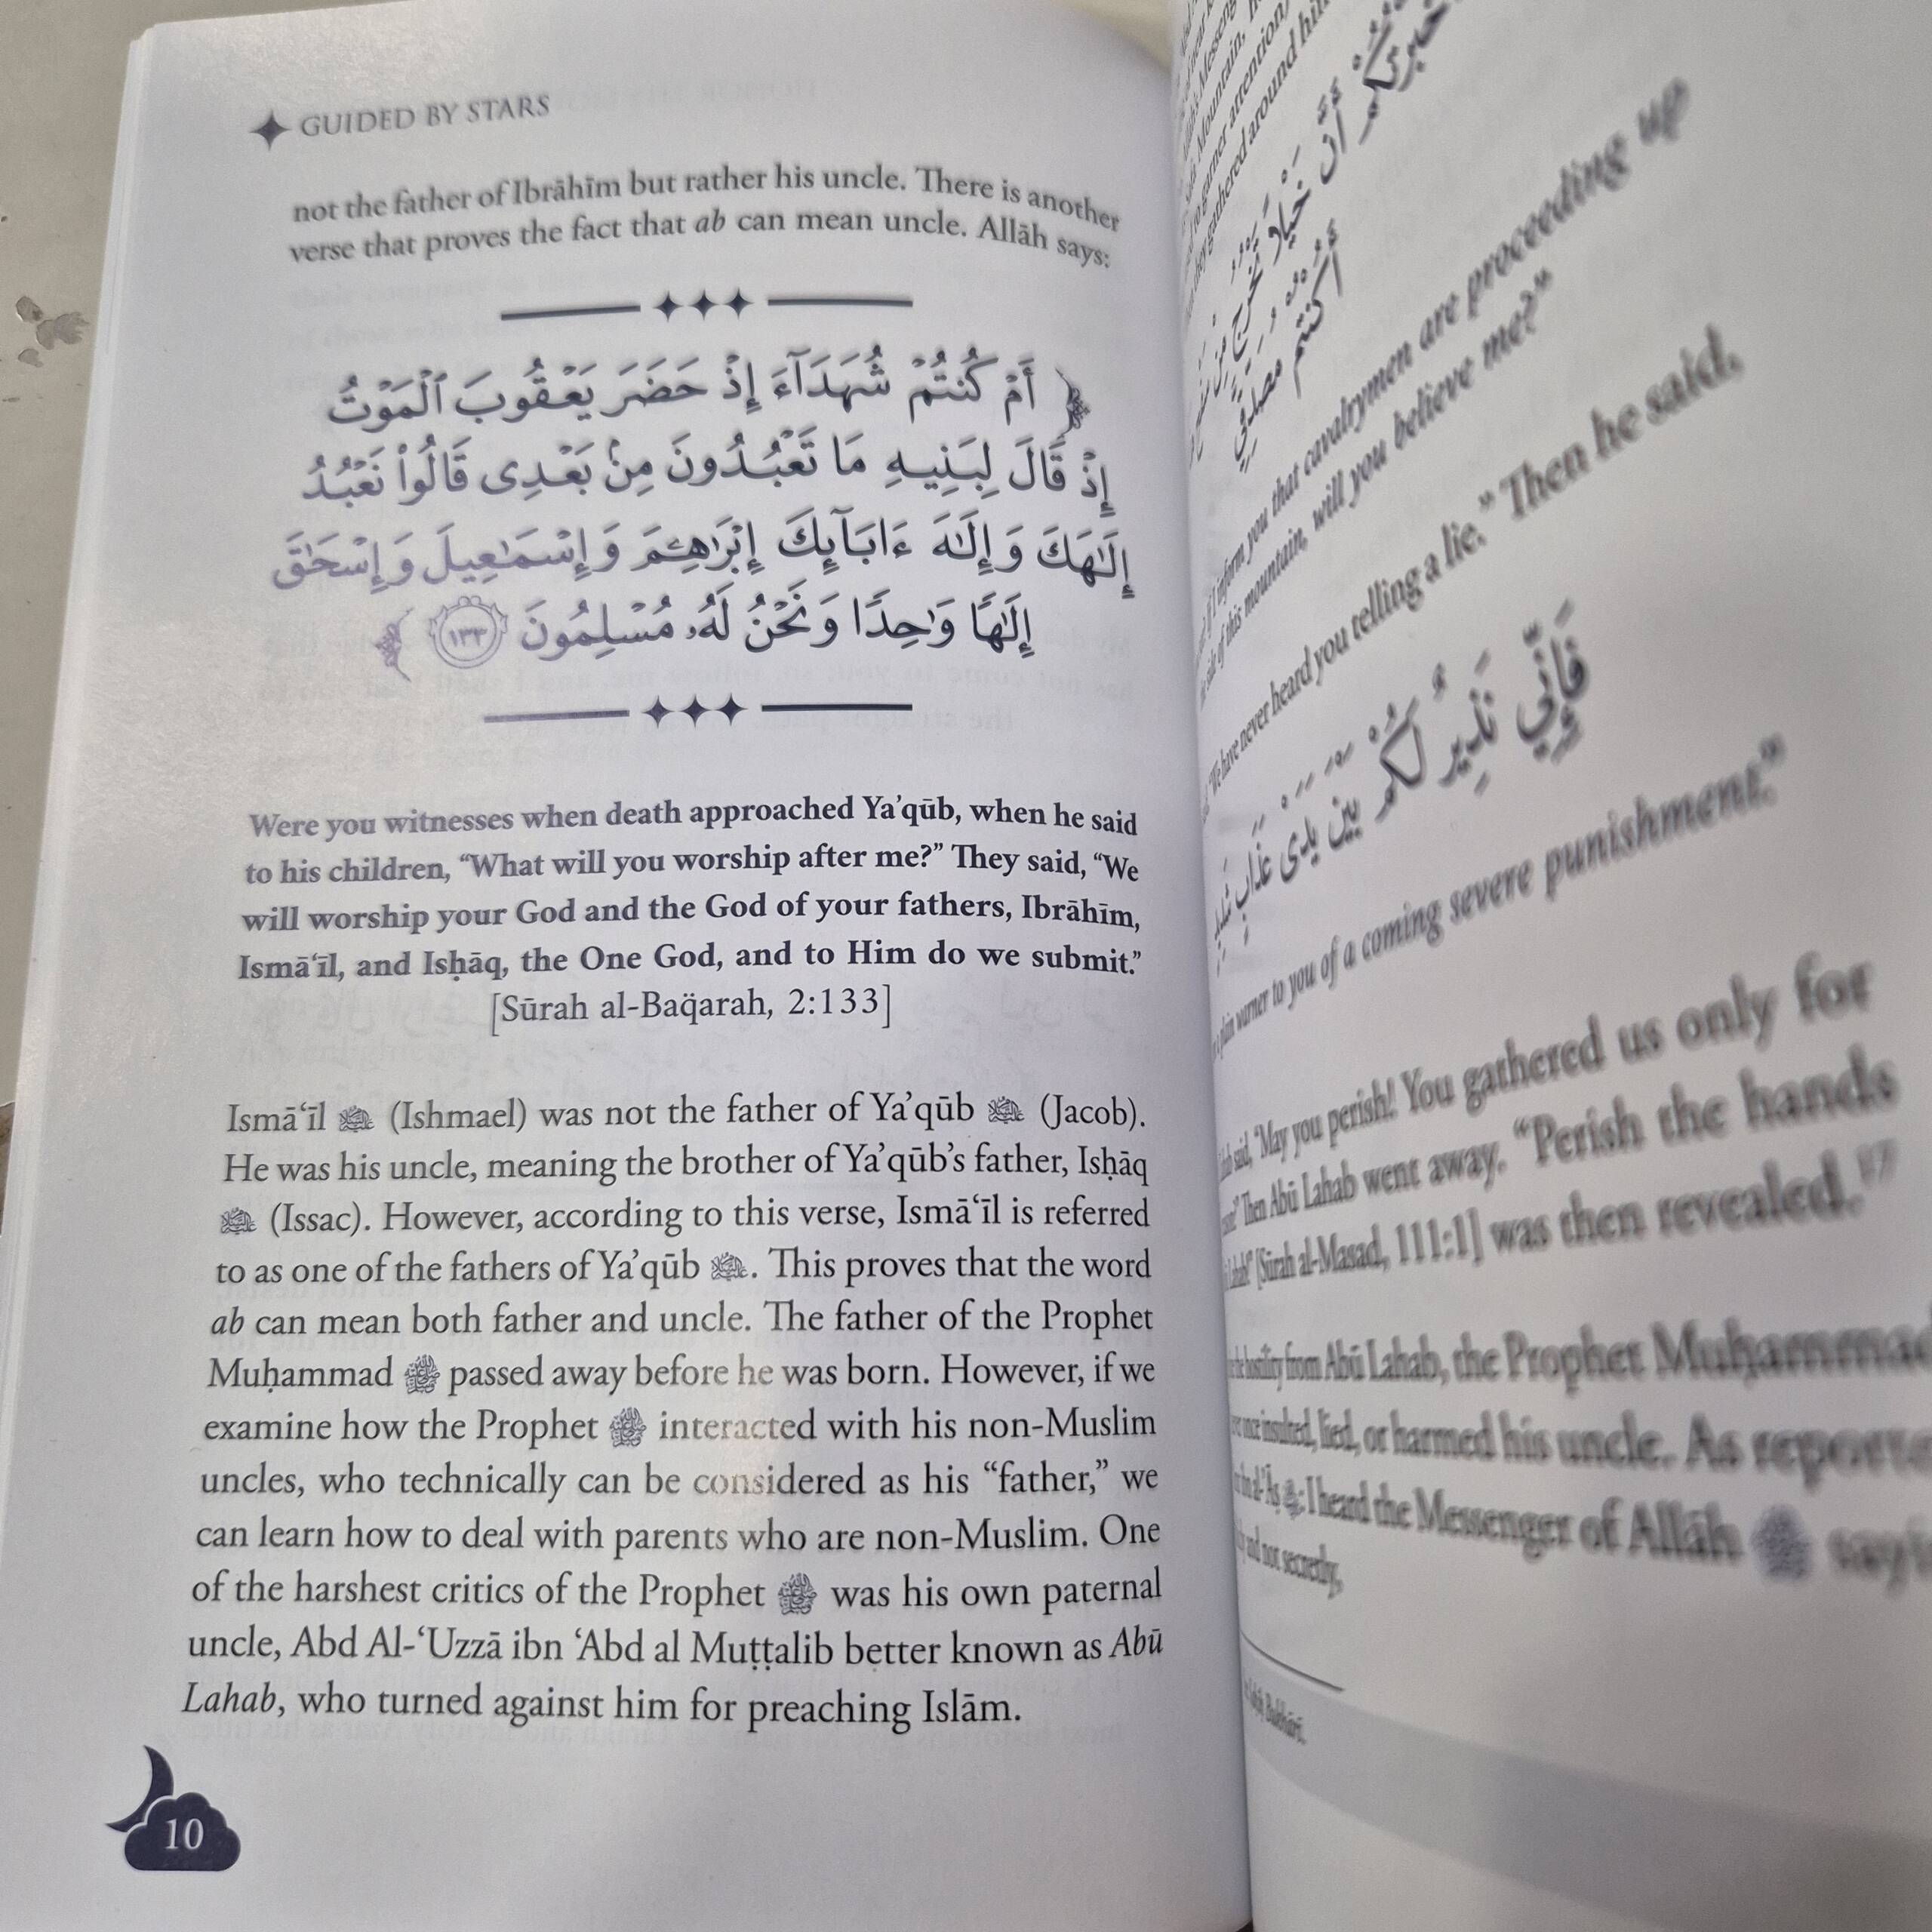 GUIDED BY STARS
not the father of Ibrāhīm but rather his uncle. There is another
verse that proves the fact that ab can mean uncle. Allāh says:
﴿ أَمْ كُنتُمْ شُهَدَآءَ إِذْ حَضَرَ يَعْقُوبَ ٱلْمَوْتُ
إِذْ قَالَ لِبَنِيهِ مَا تَعْبُدُونَ مِنۢ بَعْدِى قَالُوا۟ نَعْبُدُ
إِلَـٰهَكَ وَإِلَـٰهَ ءَابَآئِكَ إِبْرَٰهِـۧمَ وَإِسْمَـٰعِيلَ وَإِسْحَـٰقَ
إِلَـٰهًا وَٰحِدًا وَنَحْنُ لَهُۥ مُسْلِمُونَ ١٣٣ ﴾
Were you witnesses when death approached Ya’qūb, when he said
to his children, “What will you worship after me?” They said, “We
will worship your God and the God of your fathers, Ibrāhīm,
Ismā‘īl, and Isḥāq, the One God, and to Him do we submit.”
[Sūrah al-Baq̈arah, 2:133]
Ismā‘īl ﷷ (Ishmael) was not the father of Ya’qūb ﷷ (Jacob).
He was his uncle, meaning the brother of Ya’qūb’s father, Isḥāq
ﷷ (Issac). However, according to this verse, Ismā‘īl is referred
to as one of the fathers of Ya’qūb ﷷ. This proves that the word
ab can mean both father and uncle. The father of the Prophet
Muḥammad ﷺ passed away before he was born. However, if we
examine how the Prophet ﷺ interacted with his non-Muslim
uncles, who technically can be considered as his “father,” we
can learn how to deal with parents who are non-Muslim. One
of the harshest critics of the Prophet ﷺ was his own paternal
uncle, Abd Al-‘Uzzā ibn ‘Abd al Muṭṭalib better known as Abū
Lahab, who turned against him for preaching Islām.
10
gathered around
أَكُنتُمْ مُصَدِّقِيَّ
if I inform you that cavalrymen are proceeding up
side of this mountain, will you believe me?”
“We have never heard you telling a lie.” Then he said,
فَإِنِّي نَذِيرٌ لَكُمْ بَيْنَ يَدَيْ عَذَابٍ
warner to you of a coming severe punishment.”
said, “May you perish! You gathered us only for
Then Abū Lahab went away. “Perish the hands
[Sūrah al-Masad, 111:1] was then revealed.”
hostility from Abū Lahab, the Prophet
insulted, lied, or harmed his uncle. As
I heard the Messenger of Allāh ﷺ
and not secretly,
Bukhārī.